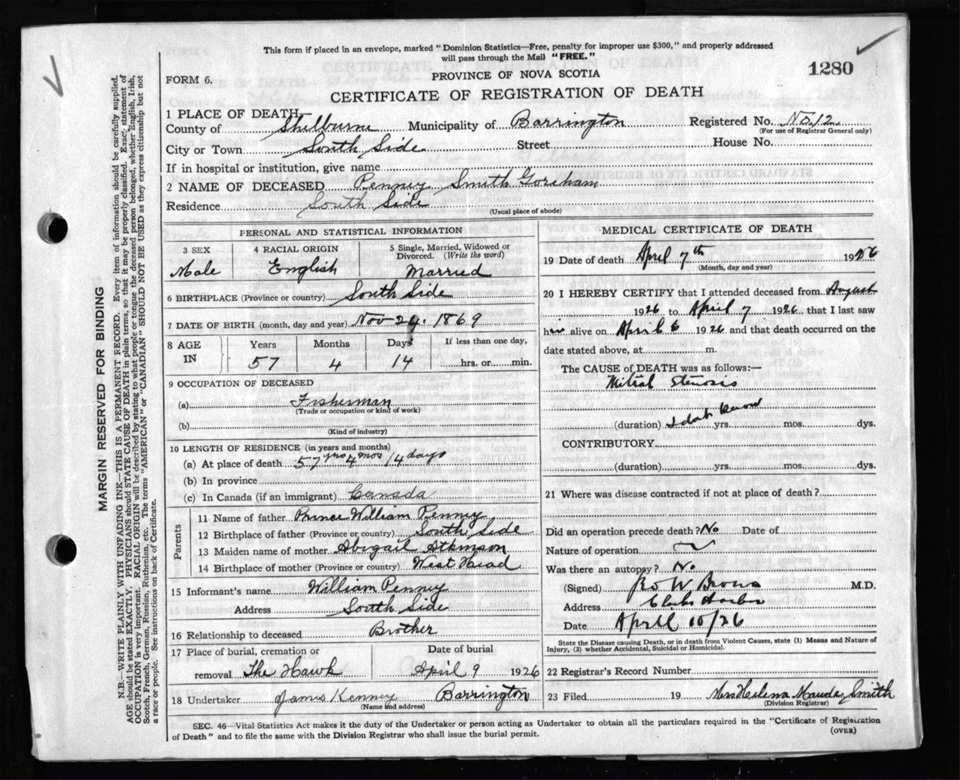 This form if placed in an envelope, marked "Dominion Statistics—Free, penalty for improper use $300," and properly addressed
will pass through the Mail "FREE."
1280
FORM 6.
PROVINCE OF NOVA SCOTIA
CERTIFICATE OF REGISTRATION OF DEATH
1 PLACE OF DEATH
County of Shelburne Municipality of Barrington Registered No. No 12
(For use of Registrar General only)
City or Town South Side Street House No.
If in hospital or institution, give name
2 NAME OF DECEASED Penney Smith Goreham
Residence South Side
(Usual place of abode)
PERSONAL AND STATISTICAL INFORMATION
3 SEX 4 RACIAL ORIGIN 5 Single, Married, Widowed or
Divorced. (Write the word)
Male English Married
6 BIRTHPLACE (Province or country) South Side
7 DATE OF BIRTH (month, day and year) Nov 24. 1869
8 AGE IN Years Months Days If less than one day,
57 4 14 hrs. or min.
9 OCCUPATION OF DECEASED
(a) Fisherman
(Trade or occupation or kind of work)
(b)
(Kind of industry)
10 LENGTH OF RESIDENCE (in years and months)
(a) At place of death 57 yrs 4 mos 14 days
(b) In province
(c) In Canada (if an immigrant) Canada
Parents
11 Name of father Prince William Penney
12 Birthplace of father (Province or country) South Side
13 Maiden name of mother Abigail Atkinson
14 Birthplace of mother (Province or country) West Head
15 Informant's name William Penney
Address South Side
16 Relationship to deceased Brother
17 Place of burial, cremation or Date of burial
removal The Hawk April 9 1926
18 Undertaker James Kenney Barrington
(Name and address)
MEDICAL CERTIFICATE OF DEATH
19 Date of death April 7th 1926
(Month, day and year)
20 I HEREBY CERTIFY that I attended deceased from August
1926 to April 7 1926 that I last saw
him alive on April 6 1926 and that death occurred on the
date stated above, at m.
The CAUSE of DEATH was as follows:—
Mitral Stenosis
(duration) I don't know yrs. mos. dys.
CONTRIBUTORY
(duration) yrs. mos. dys.
21 Where was disease contracted if not at place of death?
Did an operation precede death? No Date of
Nature of operation
Was there an autopsy? No
(Signed) W Brown M.D.
Address Clarks Harbor
Date April 10/26
State the Disease causing Death, or in death from Violent Causes, state (1) Means and Nature of
Injury, (2) whether Accidental, Suicidal or Homicidal.
22 Registrar's Record Number
23 Filed 19 Miss Helena Maude Smith
(Division Registrar)
SEC. 46—Vital Statistics Act makes it the duty of the Undertaker or person acting as Undertaker to obtain all the particulars required in the "Certificate of Registration
of Death" and to file the same with the Division Registrar who shall issue the burial permit.
(OVER)
MARGIN RESERVED FOR BINDING
N.B.—WRITE PLAINLY WITH UNFADING INK—THIS IS A PERMANENT RECORD. Every item of information should be carefully supplied.
AGE should be stated EXACTLY. PHYSICIANS should STATE CAUSE OF DEATH in plain terms, so that it may be properly classified. Exact statement of
OCCUPATION is very important. RACIAL ORIGIN will be described by stating to what people or tongue the deceased person belonged, whether English, Irish,
Scotch, French, German, Russian, Ruthenian, etc. The terms "AMERICAN" or "CANADIAN" SHOULD NOT BE USED as they express citizenship but not
a race or people. See instructions on back of Certificate.